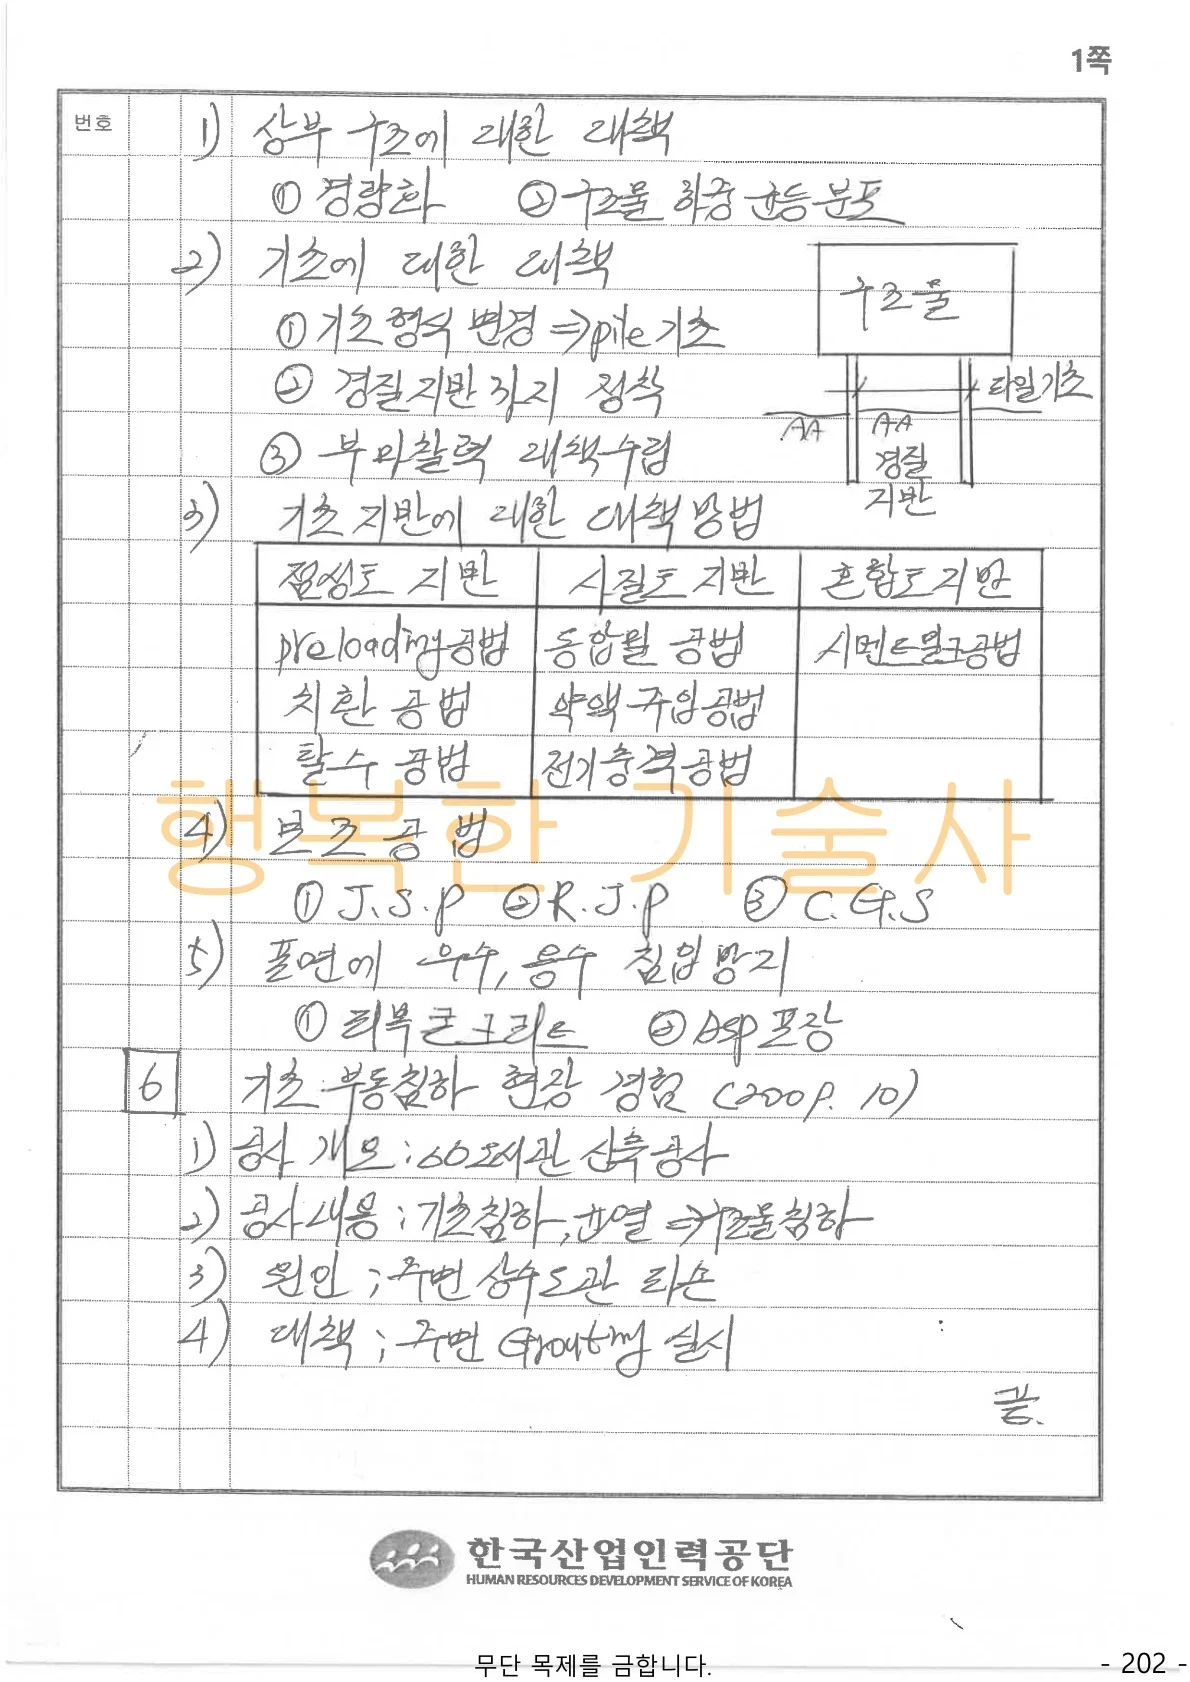 1쪽
번호
1) 상부 구조에 대한 대책
① 경량화 ② 구조물 하중 균등분포
2) 기초에 대한 대책
① 기초형식 변경 ⇒ pile기초
② 경질지반까지 정착
③ 부마찰력 대책수립
구조물
파일기초
경질
지반
3) 기초지반에 대한 대책 방법
점성토 지반 사질토 지반 혼합토지반
preloading공법 동압밀 공법 시멘트밀크공법
치환 공법 약액주입공법
탈수 공법 전기충격공법
행복한 기술사
4) 보조공법
① J.S.P ② R.J.P ③ C.G.S
5) 표면에 우수, 용수 침입방지
① 피복콘크리트 ② Asp포장
6 기초 부동침하 현장 경험 (2009. 10)
1) 공사 개요 : 00오시관 신축공사
2) 공사내용 ; 기초침하, 균열 ⇒ 구조물침하
3) 원인 ; 주변 상수도관 파손
4) 대책 ; 주변 Grouting 실시
끝.
한국산업인력공단
HUMAN RESOURCES DEVELOPMENT SERVICE OF KOREA
무단 목제를 금합니다.
- 202 -